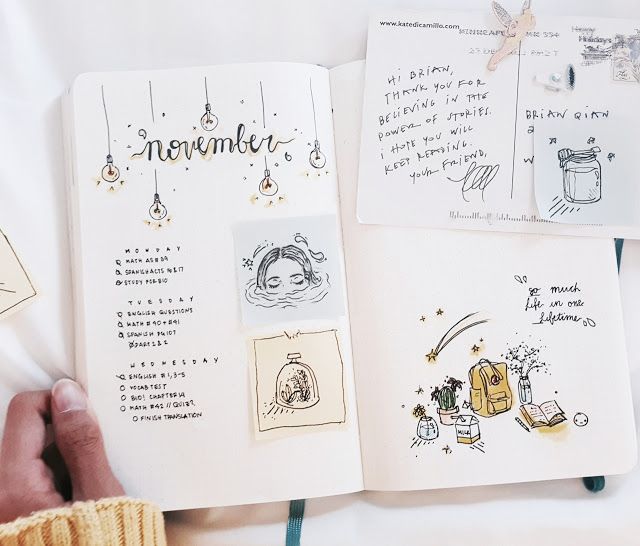 november
MONDAY
MATH AS#39
SPANISH ACTS 16 & 17
STUDY FOR BIO
TUESDAY
ENGLISH QUESTIONS
MATH #40 + #41
SPANISH PG 107
WEDNESDAY
ENGLISH #1, 3-5
VOCAB TEST
BIO! CHAPTER 14
MATH #42 // QUIZ?
FINISH TRANSLATION
www.katedicamillo.com
HI BRIAN,
THANK YOU FOR
BELIEVING IN THE
POWER OF STORIES.
I HOPE YOU WILL
KEEP READING.
YOUR FRIEND,
Happy
Holidays
BRIAN QIAN
so much
life in one
lifetime
MILK